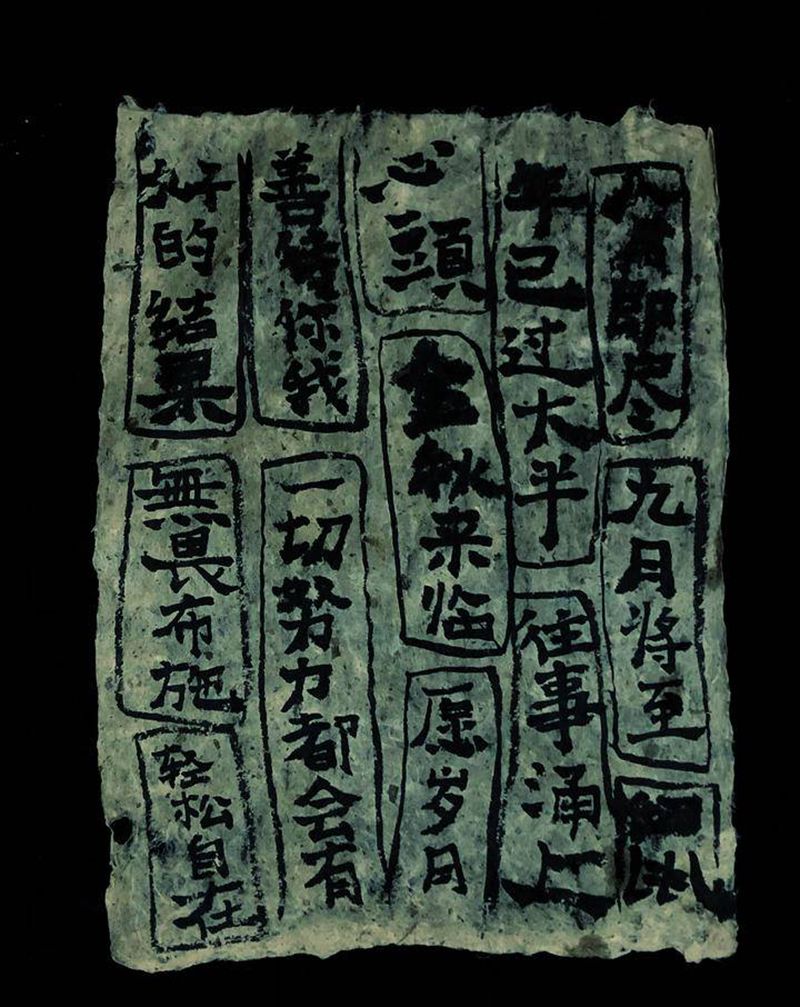 八月即尽九月将至如此
年已过大半往事涌上
心頭金秋来临愿岁月
善待你我一切努力都会有
好的结果無畏布施轻松自在